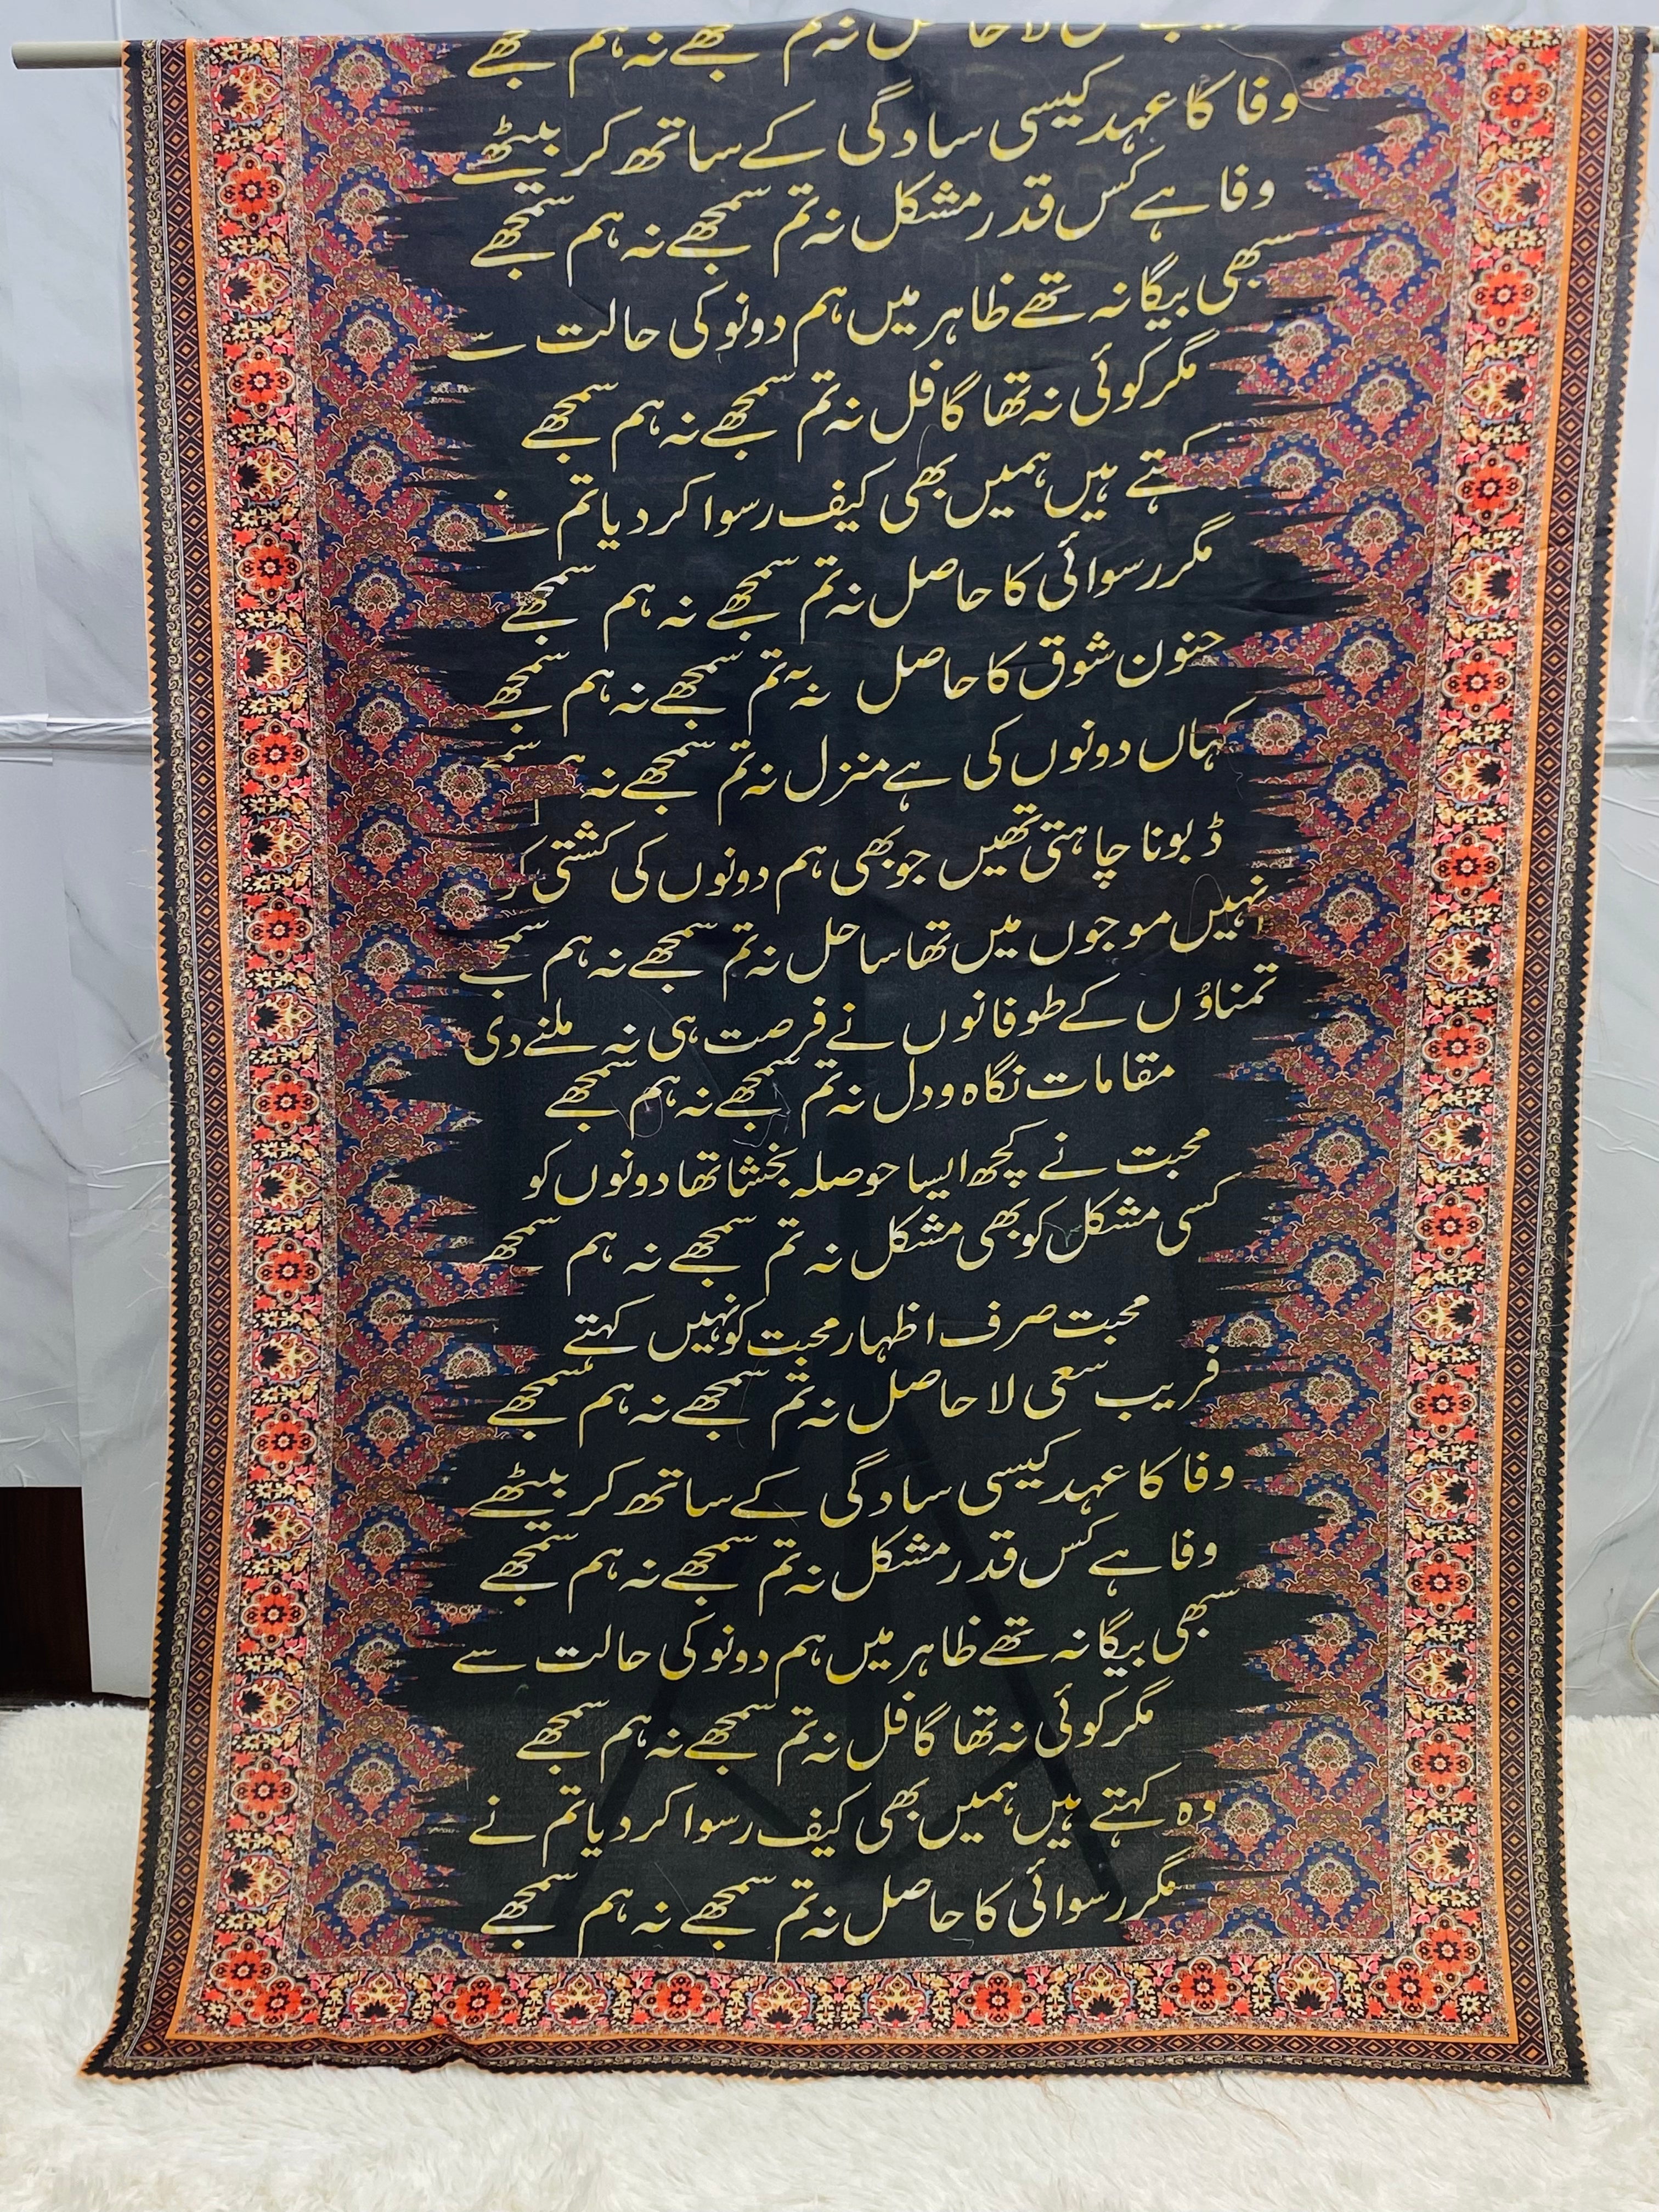 لا حاصل نہ تم سمجھے نہ ہم سمجھے
وفا کا عہد کیسی سادگی کے ساتھ کر بیٹھے
وفا ہے کس قدر مشکل نہ تم سمجھے نہ ہم سمجھے
سبھی بیگانہ تھے ظاہر میں ہم دونو کی حالت سے
مگر کوئی نہ تھا گافل نہ تم سمجھے نہ ہم سمجھے
کہتے ہیں ہمیں بھی کیف رسوا کر دیا تم نے
مگر رسوائی کا حاصل نہ تم سمجھے نہ ہم سمجھے
جنون شوق کا حاصل نہ تم سمجھے نہ ہم سمجھے
کہاں دونوں کی ہے منزل نہ تم سمجھے نہ
ڈبونا چاہتی تھیں جو بھی ہم دونوں کی کشتی کو
نہیں موجوں میں تھا ساحل نہ تم سمجھے نہ ہم سمجھے
تمناؤں کے طوفانوں نے فرصت ہی نہ ملنے دی
مقامات نگاہ و دل نہ تم سمجھے نہ ہم سمجھے
محبت نے کچھ ایسا حوصلہ بخشا تھا دونوں کو
کسی مشکل کو بھی مشکل نہ تم سمجھے نہ ہم سمجھے
محبت صرف اظہار محبت کو نہیں کہتے
فریب سعی لا حاصل نہ تم سمجھے نہ ہم سمجھے
وفا کا عہد کیسی سادگی کے ساتھ کر بیٹھے
وفا ہے کس قدر مشکل نہ تم سمجھے نہ ہم سمجھے
سبھی بیگانہ تھے ظاہر میں ہم دونو کی حالت سے
مگر کوئی نہ تھا گافل نہ تم سمجھے نہ ہم سمجھے
وہ کہتے ہیں ہمیں بھی کیف رسوا کر دیا تم نے
مگر رسوائی کا حاصل نہ تم سمجھے نہ ہم سمجھے